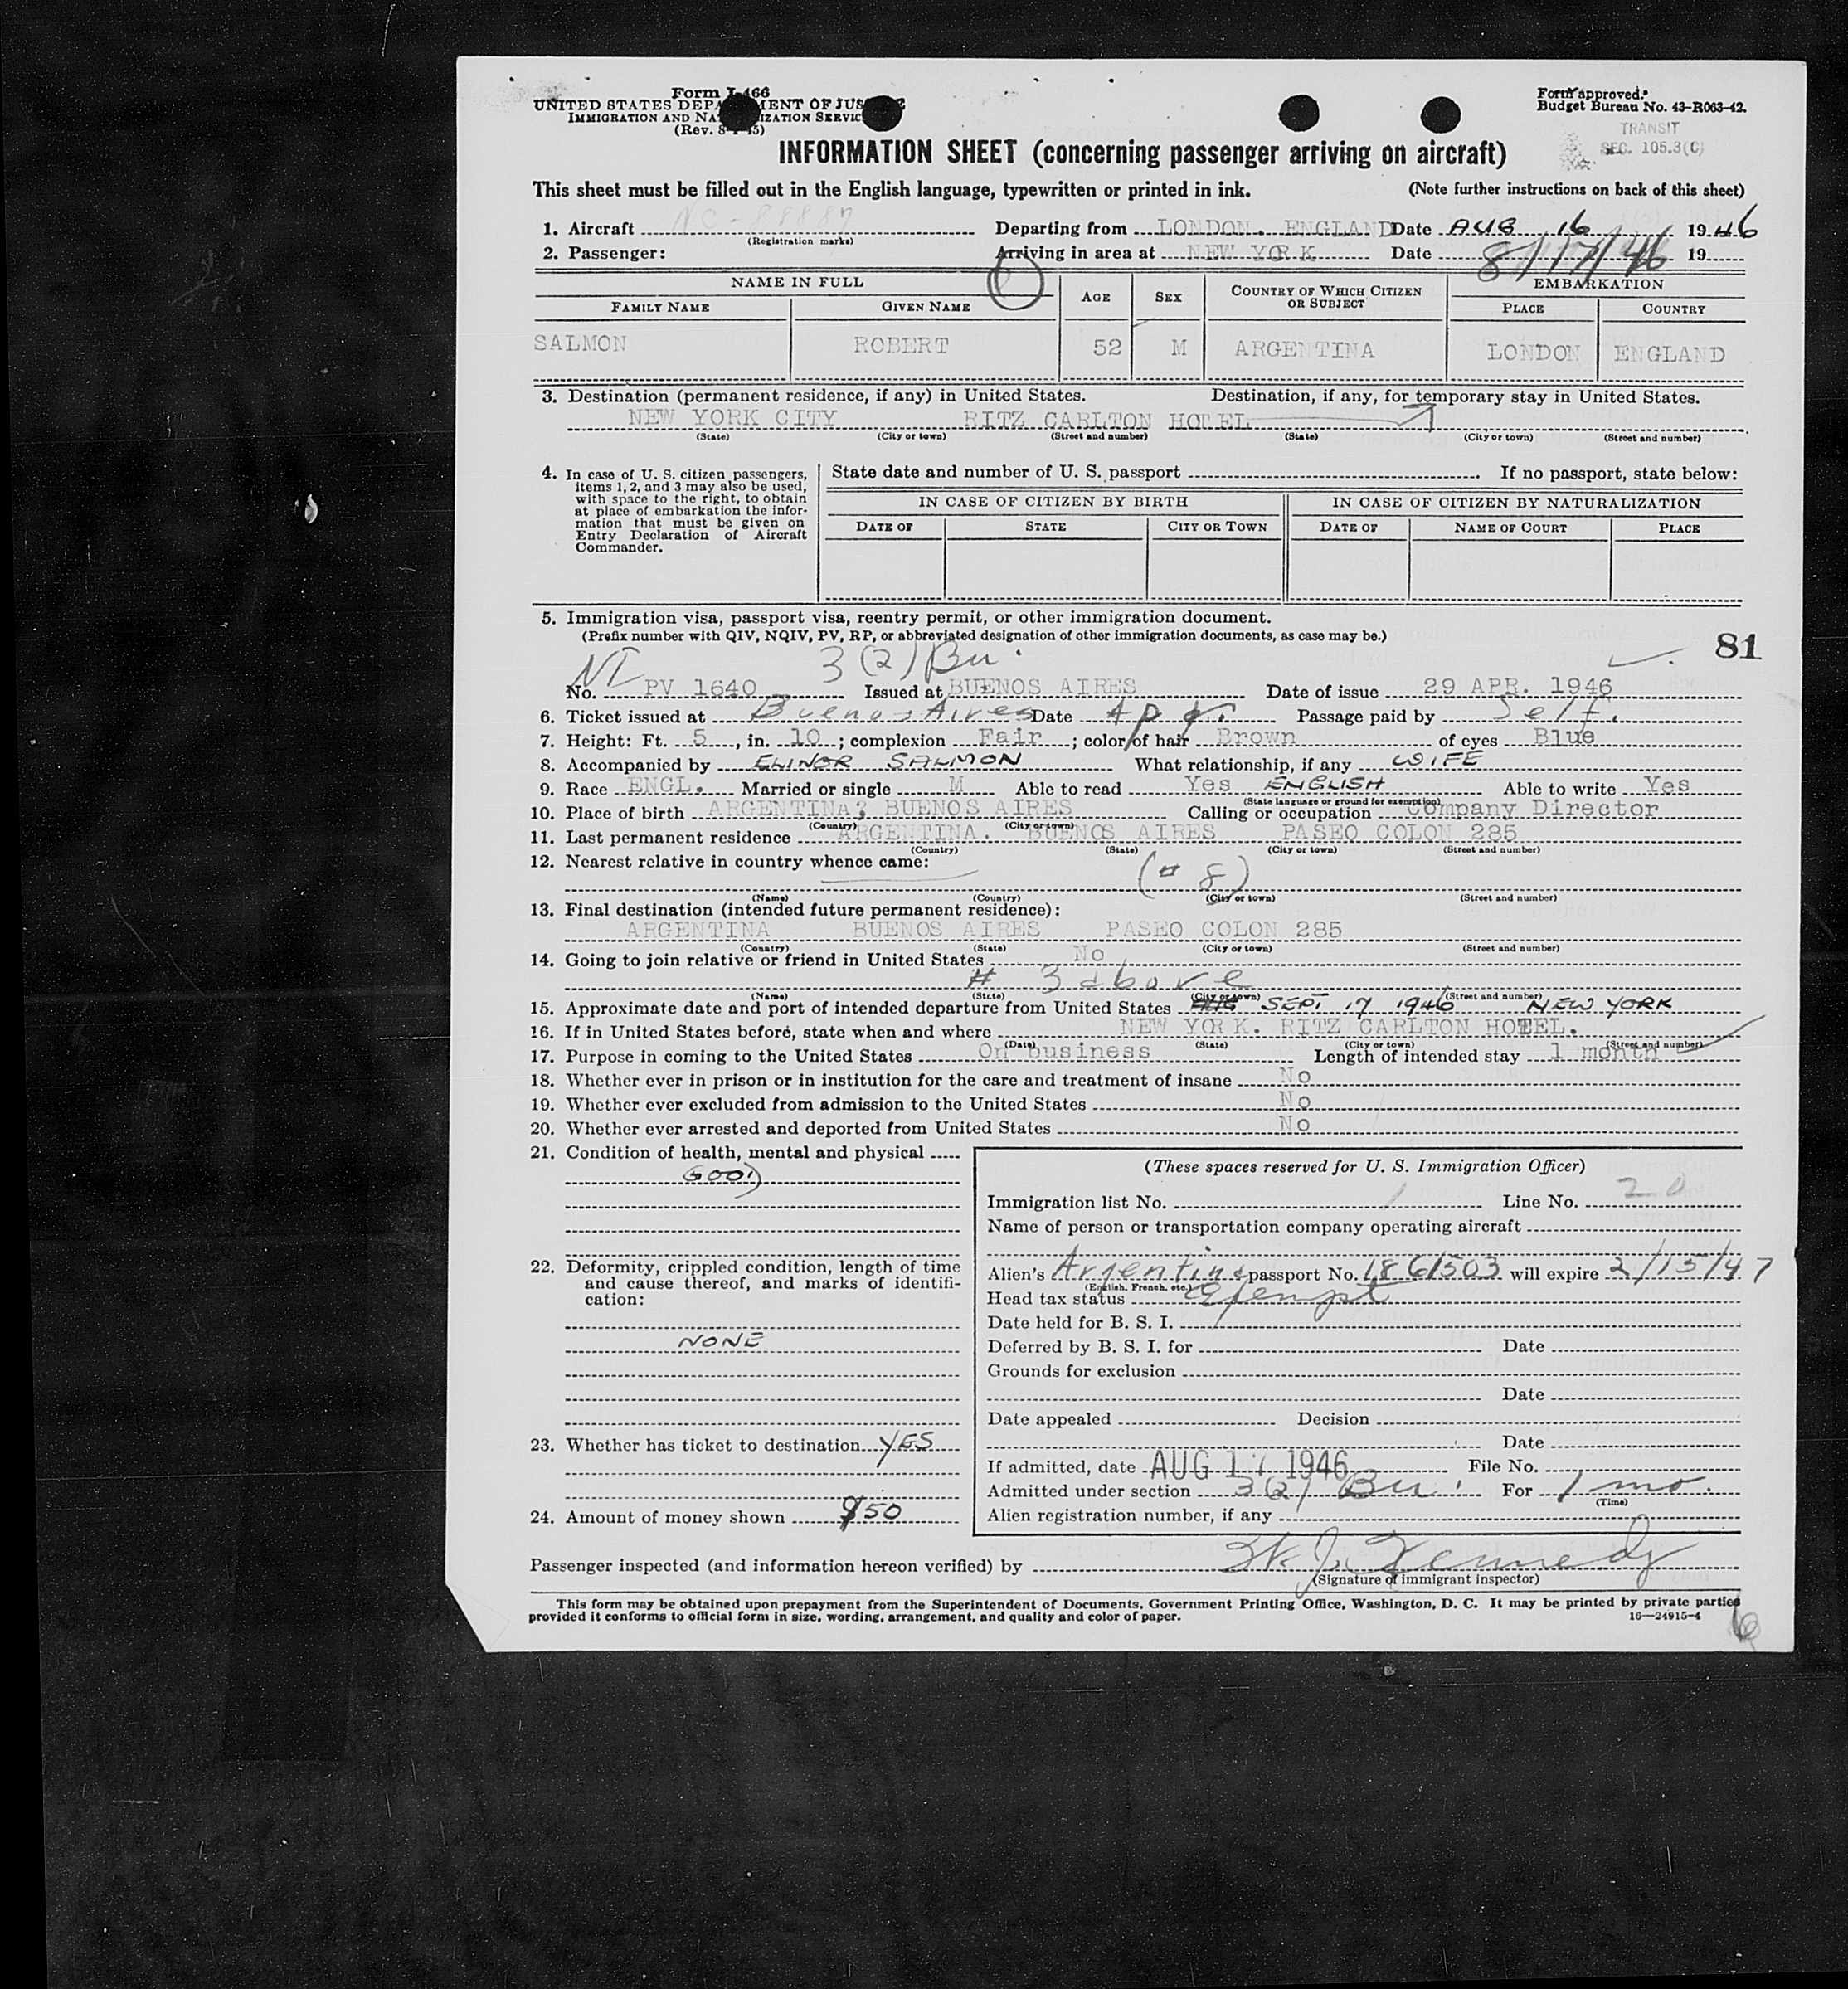 Form I-466
UNITED STATES DEPARTMENT OF JUSTICE
IMMIGRATION AND NATURALIZATION SERVICE
(Rev. 8-1-45)
Form approved.
Budget Bureau No. 43-R063-42.
TRANSIT
SEC. 105.3(C)
INFORMATION SHEET (concerning passenger arriving on aircraft)
This sheet must be filled out in the English language, typewritten or printed in ink. (Note further instructions on back of this sheet)
1. Aircraft NC-88887 Departing from LONDON. ENGLAND Date AUG 16 1946
(Registration marks)
2. Passenger: Arriving in area at NEW YORK Date 8/17/46 19
NAME IN FULL AGE SEX COUNTRY OF WHICH CITIZEN OR SUBJECT EMBARKATION
FAMILY NAME GIVEN NAME PLACE COUNTRY
SALMON ROBERT 52 M ARGENTINA LONDON ENGLAND
3. Destination (permanent residence, if any) in United States. Destination, if any, for temporary stay in United States.
NEW YORK CITY RITZ CARLTON HOTEL
(State) (City or town) (Street and number) (State) (City or town) (Street and number)
4. In case of U. S. citizen passengers, items 1, 2, and 3 may also be used, with space to the right, to obtain at place of embarkation the information that must be given on Entry Declaration of Aircraft Commander.
State date and number of U. S. passport If no passport, state below:
IN CASE OF CITIZEN BY BIRTH IN CASE OF CITIZEN BY NATURALIZATION
DATE OF STATE CITY OR TOWN DATE OF NAME OF COURT PLACE
5. Immigration visa, passport visa, reentry permit, or other immigration document.
(Prefix number with QIV, NQIV, PV, RP, or abbreviated designation of other immigration documents, as case may be.)
81
NI 3(2) Bu.
No. PV 1640 Issued at BUENOS AIRES Date of issue 29 APR. 1946
6. Ticket issued at Buenos Aires Date Apr. Passage paid by Self.
7. Height: Ft. 5, in. 10; complexion Fair; color of hair Brown of eyes Blue
8. Accompanied by ELINOR SALMON What relationship, if any WIFE
9. Race ENGL. Married or single M Able to read Yes ENGLISH Able to write Yes
(State language or ground for exemption)
10. Place of birth ARGENTINA; BUENOS AIRES Calling or occupation Company Director
(Country) (City or town)
11. Last permanent residence ARGENTINA. BUENOS AIRES PASEO COLON 285
(Country) (State) (City or town) (Street and number)
12. Nearest relative in country whence came:
(# 8)
(Name) (Country) (City or town) (Street and number)
13. Final destination (intended future permanent residence):
ARGENTINA BUENOS AIRES PASEO COLON 285
(Country) (State) (City or town) (Street and number)
14. Going to join relative or friend in United States No
# 3 above
(Name) (State) (City or town) (Street and number)
15. Approximate date and port of intended departure from United States SEPT 17 1946 NEW YORK
16. If in United States before, state when and where NEW YORK. RITZ CARLTON HOTEL.
(Date) (State) (City or town) (Street and number)
17. Purpose in coming to the United States On business Length of intended stay 1 month
18. Whether ever in prison or in institution for the care and treatment of insane No
19. Whether ever excluded from admission to the United States No
20. Whether ever arrested and deported from United States No
21. Condition of health, mental and physical
GOOD
22. Deformity, crippled condition, length of time and cause thereof, and marks of identification:
NONE
23. Whether has ticket to destination YES
24. Amount of money shown $50
(These spaces reserved for U. S. Immigration Officer)
Immigration list No. 1 Line No. 20
Name of person or transportation company operating aircraft
Alien's Argentine passport No. 1861503 will expire 2/15/47
(English, French, etc.)
Head tax status Exempt
Date held for B. S. I.
Deferred by B. S. I. for Date
Grounds for exclusion
Date
Date appealed Decision
Date
If admitted, date AUG 17 1946 File No.
Admitted under section 3(2) Bu. For 1 mo.
(Time)
Alien registration number, if any
Passenger inspected (and information hereon verified) by Kennedy
(Signature of immigrant inspector)
This form may be obtained upon prepayment from the Superintendent of Documents, Government Printing Office, Washington, D. C. It may be printed by private parties
provided it conforms to official form in size, wording, arrangement, and quality and color of paper. 16—24915-4